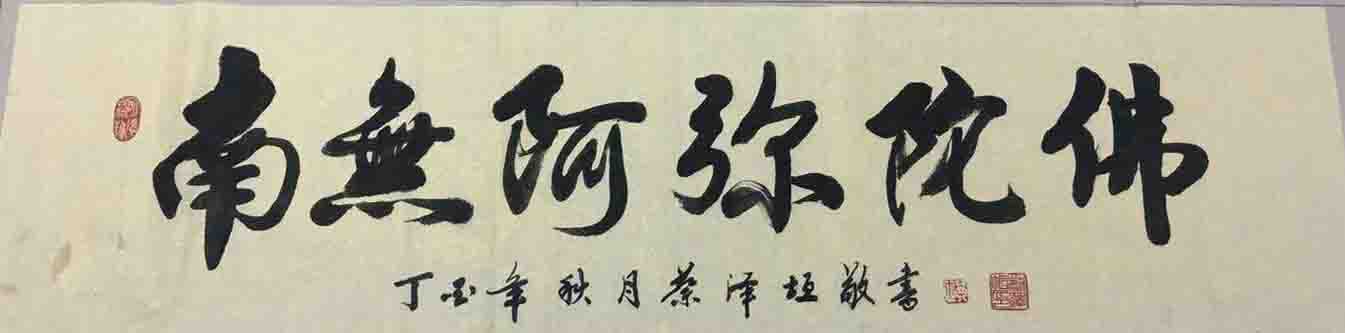 南無阿弥陀佛
丁酉年秋月蔡泽垣敬书